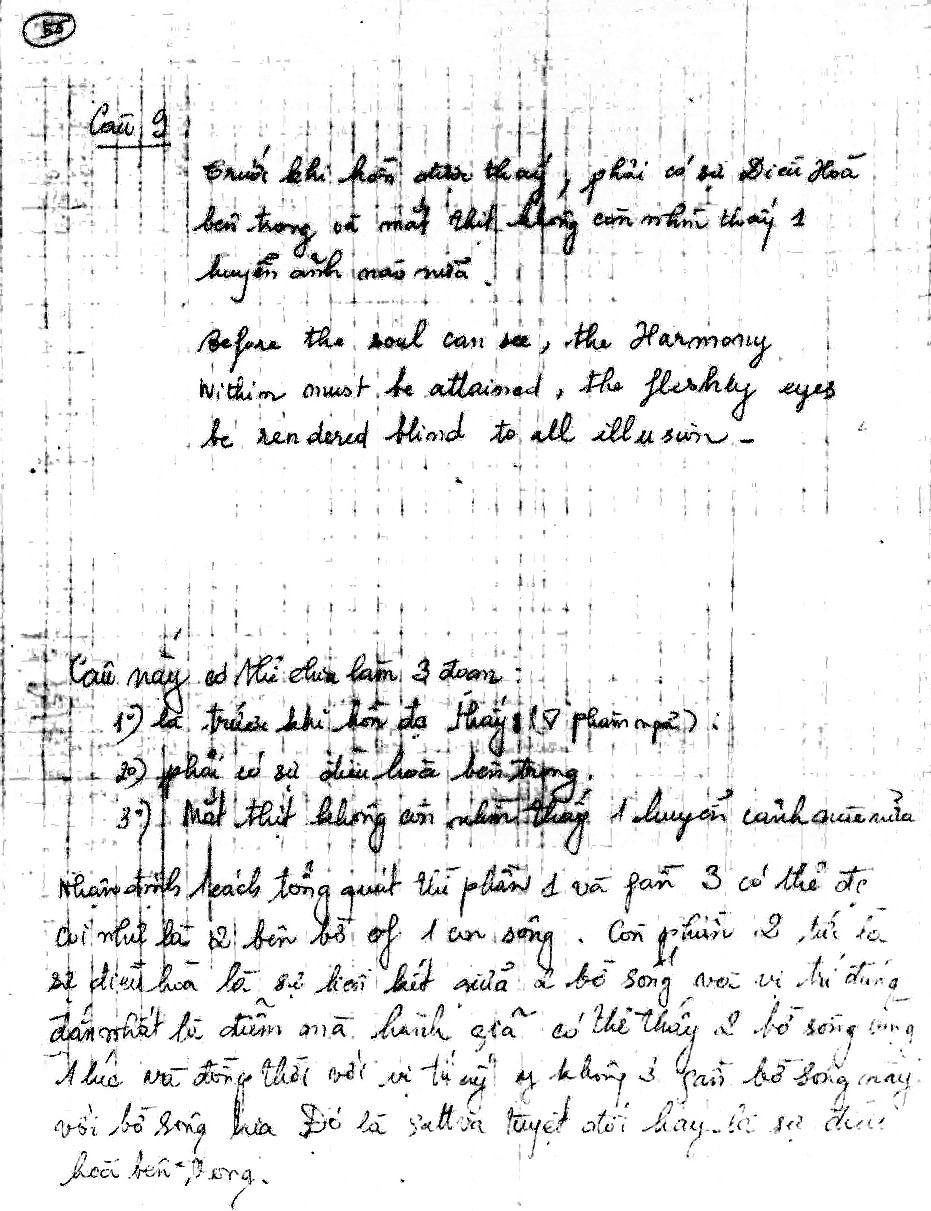 55
Câu 9
Trước khi hồn được thấy, phải có sự Điều Hoà
bên trong và mắt thịt không còn nhìn thấy 1
huyễn ảnh nào nữa.
Before the soul can see, the Harmony
Within must be attained, the fleshly eyes
be rendered blind to all illusion -
Câu này có thể chia làm 3 đoạn :
1º) là trước khi hồn đc thấy (∇ phàm ngã) :
2º) phải có sự điều hoà bên trong.
3º) Mắt thịt không còn nhìn thấy 1 huyễn cảnh nào nữa
Nhận định 1 cách tổng quát thì phần 1 và gần 3 có thể đc
coi như là 2 bên bờ of 1 con sông. Còn phần 2, tức là
sự điều hoà là sự liên kết giữa 2 bờ sông và vị trí đúng
đắn nhất là điểm mà hành giả có thể thấy 2 bờ sông cùng
1 lúc và đồng thời với vị trí ấy không gần bờ sông này
với bờ sông kia Đó là sattva tuyệt đối hay là sự điều
hoà bên trong.